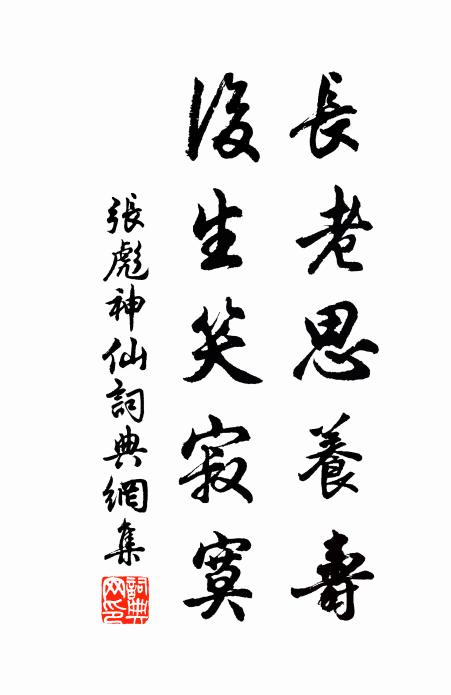 長老思養壽
後生笑寂寞
張彪神仙詞典網集
詞典網印